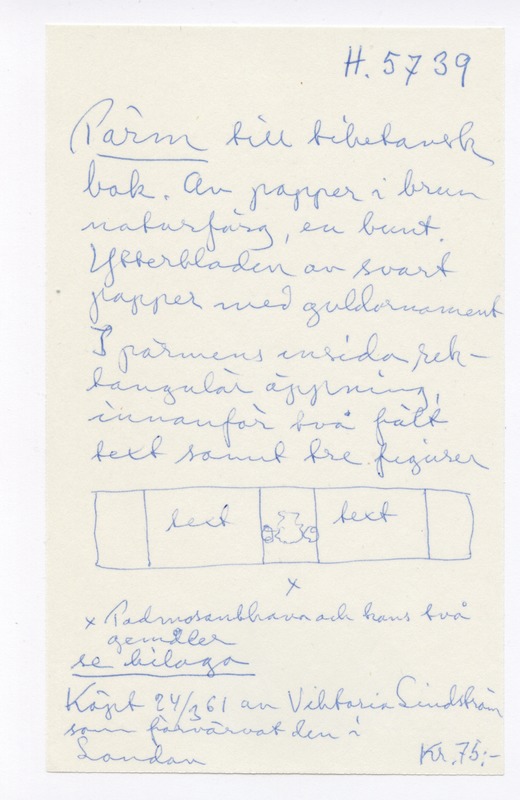 H. 5739
Pärm till tibetansk
bok. Av papper i brun
naturfärg, en bunt.
Ytterbladen av svart
papper med guldornament
I pärmens insida rek-
tangulär öppning,
innanför två fält
text samt tre figurer
text text
x
x Padmosambhava och hans två
gemåler
se bilaga
Köpt 24/3 61 av Viktoria Lindström
som förvärvat den i
London Kr. 75:-